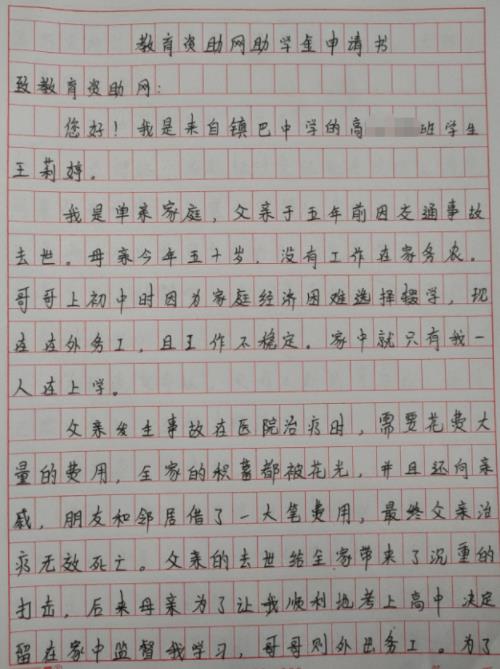 教育资助网助学金申请书
致教育资助网:
您好!我是来自镇巴中学的高 班学生
王莉婷。
我是单亲家庭,父亲于五年前因交通事故
去世。母亲今年五十岁,没有工作在家务农。
哥哥上初中时因为家庭经济困难选择辍学,现
在在外务工,且工作不稳定。家中就只有我一
人在上学。
父亲发生事故在医院治疗时,需要花费大
量的费用,全家的积蓄都被花光,并且还向亲
戚,朋友和邻居借了一大笔费用,最终父亲治
疗无效死亡。父亲的去世给全家带来了沉重的
打击,后来母亲为了让我顺利地考上高中 决定
留在家中监督我学习,哥哥则外出务工。为了